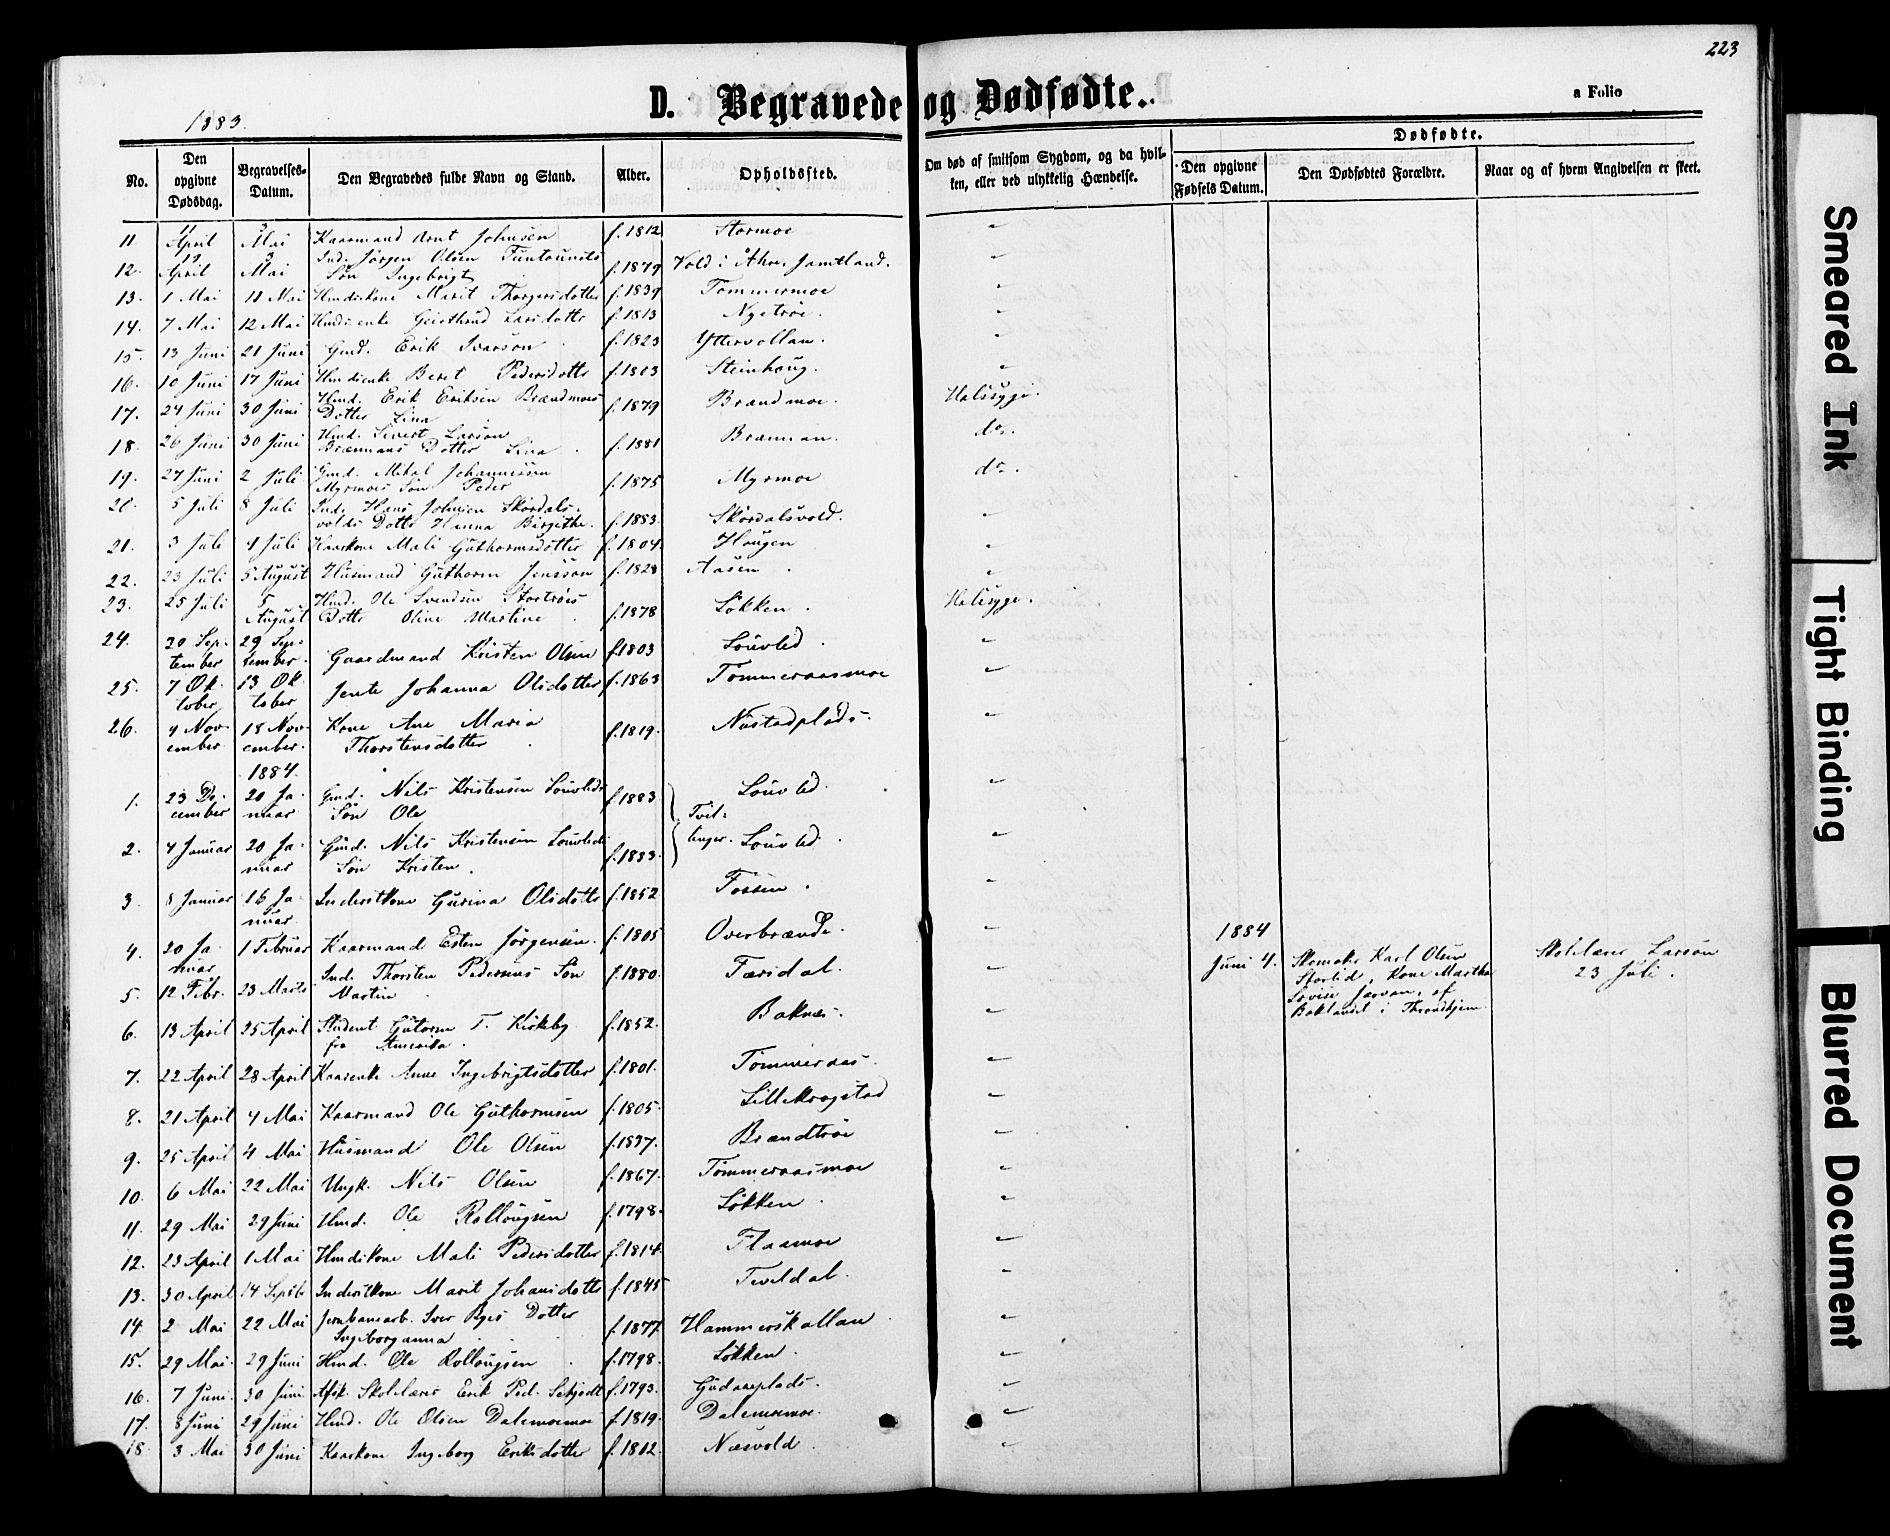 223
D. Begravede og Dødfødte.
a Folio
1883.
No.
Den opgivne Dødsdag.
Begravelses-Datum.
Den Begravedes fulde Navn og Stand.
Alder.
Opholdssted.
Om død af smitsom Sygdom, og da hvilken, eller ved ulykkelig Hændelse.
Dødfødte.
Den opgivne Fødsels Datum.
Den Dødfødtes Forældre.
Naar og af hvem Angivelsen er skeet.
11 11 April 3 Mai Kaarmand Arnt Johnsen f. 1812 Stormoe
12. 19 April 3 Mai Ind. Jørgen Olsen f. 1879 Vold i Åhre, Jamtland.
Søn Ingebrigt
13. 1 Mai 11 Mai Hmdskone Marit Thorgersdotter f. 1839 Tømmermoe
14. 7 Mai 12 Mai Hmdsenke Larsdotter f. 1813 Nytrøe.
15. 13 Juni 21 Juni Gmd. Erik Ivarson f. 1823 Yttervollan.
16. 10 Juni 17 Juni Hmdsenke Beret Pedersdotter f. 1803 Steinhoug.
17. 24 Juni 30 Juni Hmd. Erik Eriksen Brændmoes f. 1879 Brændmoe. Halssyge.
Dotter Lina
18. 26 Juni 30 Juni Hmd. Sivert Larson f. 1881 Brænnan. do.
Brænnans Dotter Lina
19. 27 Juni 2 Juli Gmd. Mikal Johannessen f. 1875 Myrmoe do.
Myrmoes Søn Peder
20. 5 Juli 8 Juli Ind. Hans Johnsen Skordals- f. 1883. Skordalsvold.
volds Dotter Hanna Birgithe.
21. 3 Juli 4 Juli Kaarkone Mali Guthormsdotter f. 1804. Hougen
22. 23 Juli 5 August Husmand Guthorm Jensson f. 1828 Aasen.
23. 25 Juli 5 August Hmd. Ole Svendsen Stortrøes f. 1878 Løkken. Halssyge.
Dotter Oline Martine
24. 20 September 29 September. Gaardmand Kristen Olsen f. 1803 Louvlid.
25. 7 Oktober 13 Oktober Jente Johanna Olsdotter f. 1863 Tømmeraasmoe
26. 4 November 18 November. Kone Ane Maria f. 1819. Nustadplads.
Thorstensdotter
1884.
1. 23 December 20 Januar Gmd. Nils Kristensen Louvlids f. 1883 Tvil- Louvlid.
Søn Ole
2. 4 Januar 20 Januar Gmd. Nils Kristensen Louvlids f. 1883. linger. Louvlid.
Søn Kristen.
3. 8 Januar 16 Januar Inderstkone Gurina Olsdotter f. 1852 Fossen.
4. 20 Januar 1 Februar Kaarmand Esten Jørgensen. f. 1805 Overbrænde.
1884
5. 12 Febr. 23 Marts Ind. Thorsten Pedersens Søn f. 1880. Færsdal.
Martin
Juni 4. Skomaker Karl Olsen
Storlid, Kone Martha
Lovise Jarvan, af
Baklandet i Throndhjem
Skolelærer Larson
23 Juli.
6. 13 April 25 April Student Gutorm T. Kirkeby f. 1852. Baknes.
fra Amerika.
7. 22 April 28 April Kaarenke Anne Ingebrigtsdotter f. 1801. Tømmeraas.
8. 21 April 4 Mai Kaarmand Ole Guthormsen f. 1805. Lillekrogstad
9. 25 April 4 Mai Husmand Ole Olsen f. 1837. Brændtrøe
10. 6 Mai 22 Mai Ungk. Nils Olsen f. 1867. Tømmeraasmoe
11. 29 Mai 29 Juni Hmd. Ole Rollougsen f. 1798. Løkken.
12. 23 April 1 Mai Hmdskone Mali Pedersdotter f. 1814. Flaamoe
13. 30 April 14 Septbr Inderstkone Marit Johansdotter f. 1845 Teveldal.
14. 2 Mai 22 Mai Jernbanearb. Iver Byes Dotter f. 1877. Hammerskallan
Ingeborganna
15. 29 Mai. 29 Juni Hmd. Ole Rollougsen f. 1798. Løkken.
16. 7 Juni. 30 Juni Afsk. Skolelærer Erik Ped. f. 1793. Gudaaplads.
17. 8 Juni 29 Juni Hmd. Ole Olsen Dalemoemoe f. 1819. Dalemoemoe.
18. 3 Mai 30 Juni Kaarkone Ingeborg Eriksdotter f. 1812. Næsvold.
Smeared Ink
Tight Binding
Blurred Document